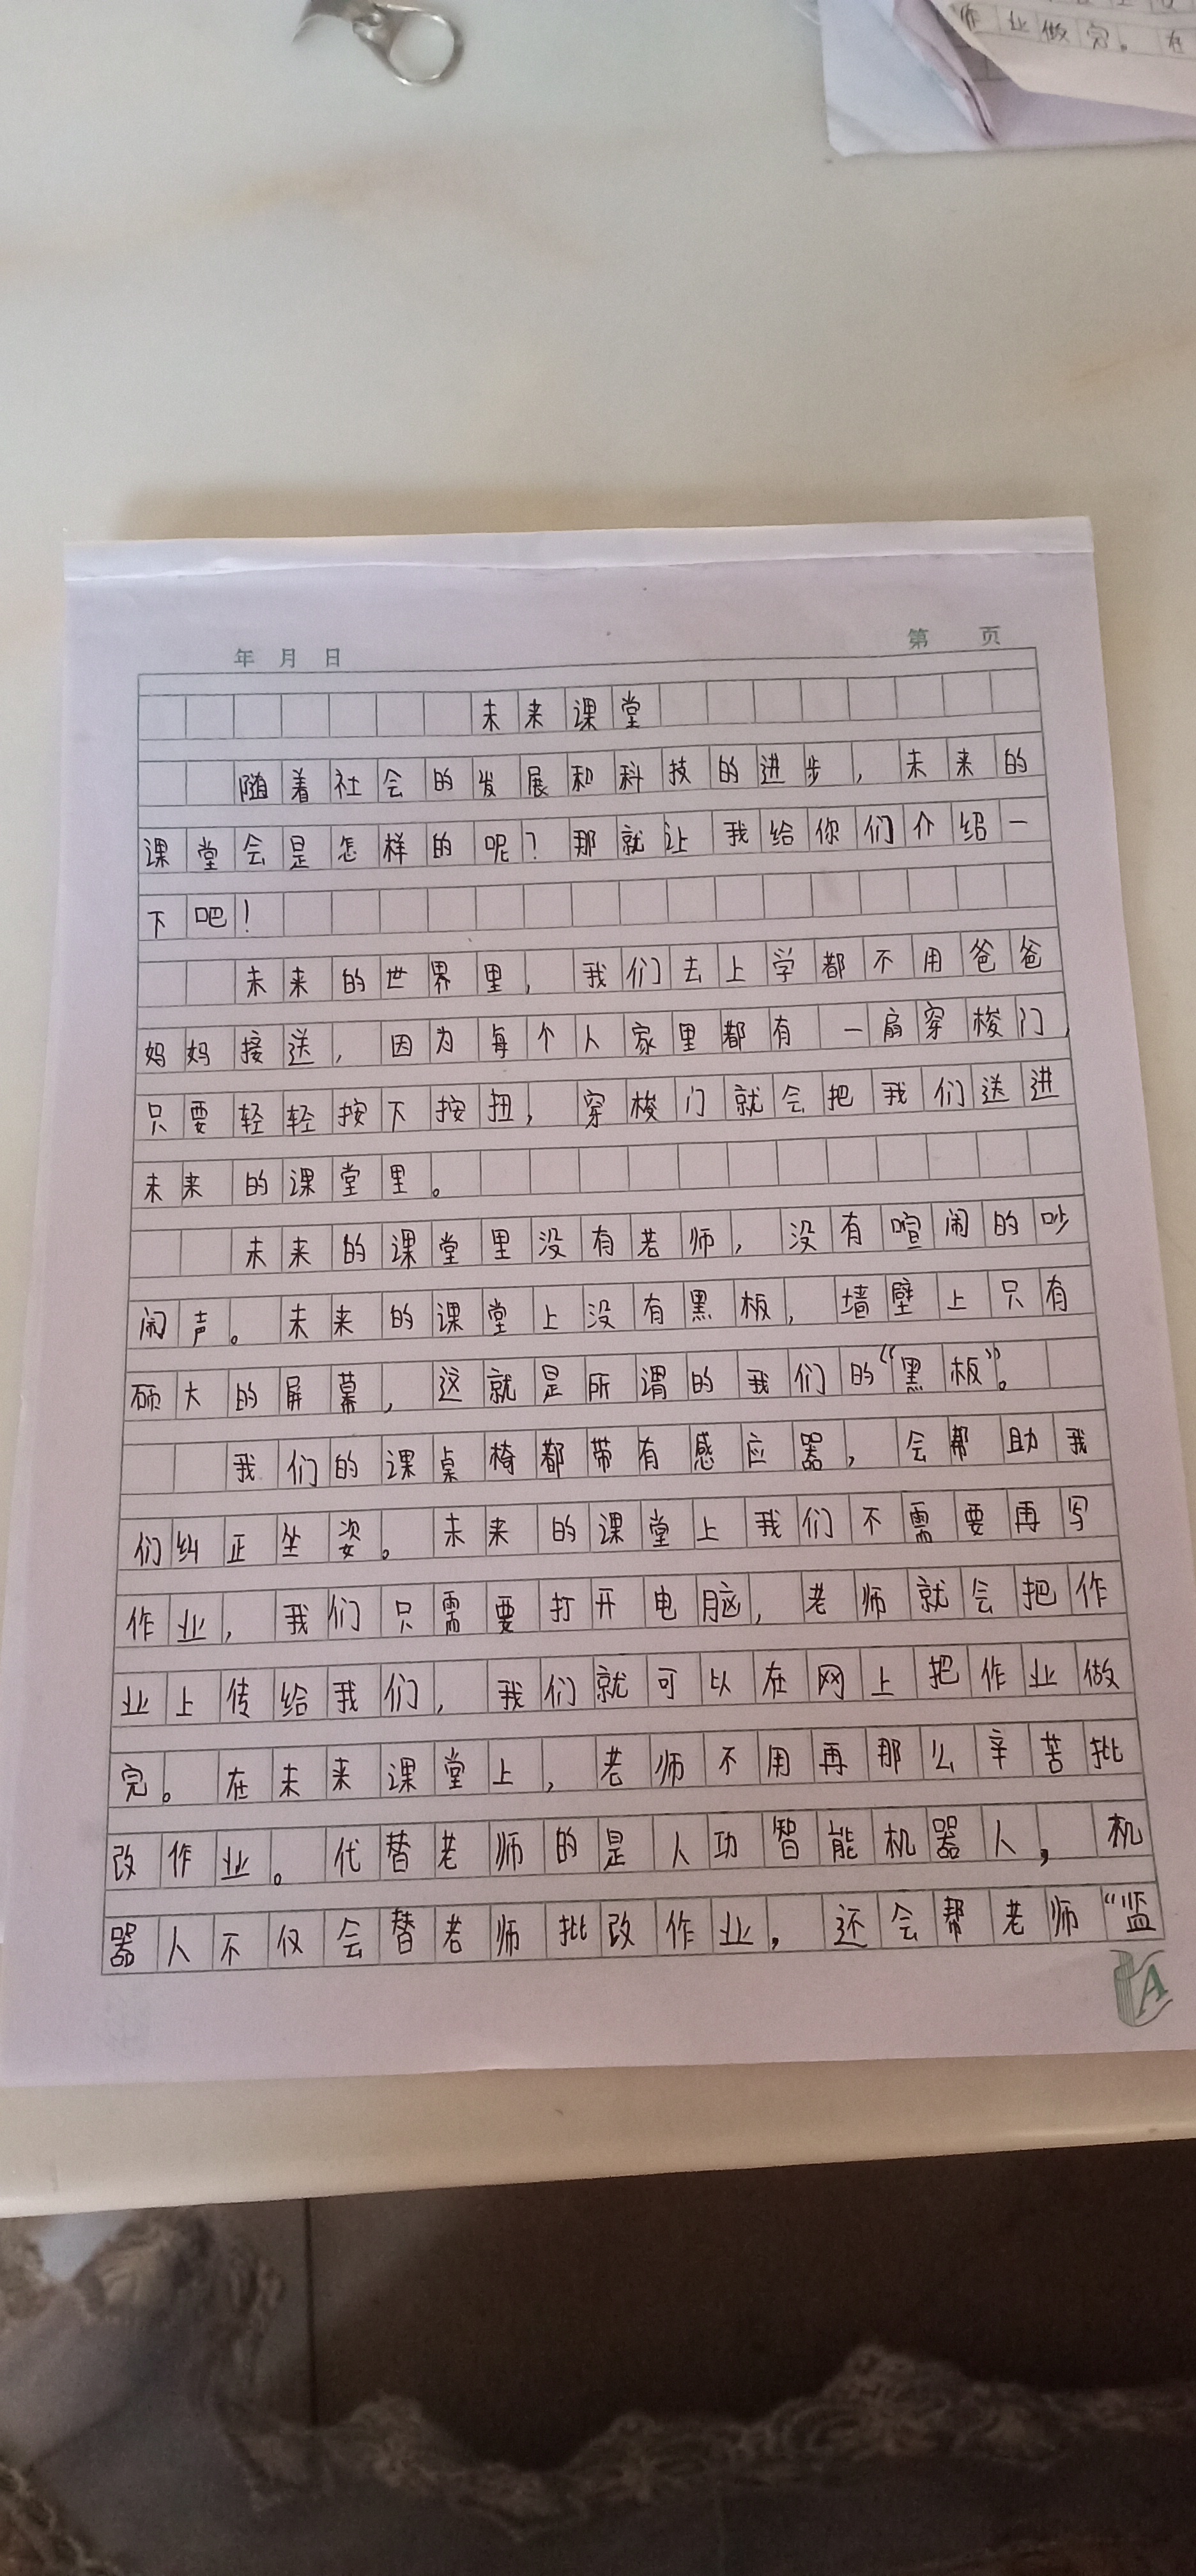 作业做完。在
年 月 日
第 页
未来课堂
随着社会的发展和科技的进步，未来的
课堂会是怎样的呢？那就让我给你们介绍一
下吧！
未来的世界里，我们去上学都不用爸爸
妈妈接送，因为每个人家里都有一扇穿梭门，
只要轻轻按下按扭，穿梭门就会把我们送进
未来的课堂里。
未来的课堂里没有老师，没有喧闹的吵
闹声。未来的课堂上没有黑板，墙壁上只有
硕大的屏幕，这就是所谓的我们的“黑板”。
我们的课桌椅都带有感应器，会帮助我
们纠正坐姿。未来的课堂上我们不需要再写
作业，我们只需要打开电脑，老师就会把作
业上传给我们，我们就可以在网上把作业做
完。在未来课堂上，老师不用再那么辛苦批
改作业。代替老师的是人功智能机器人，机
器人不仅会替老师批改作业，还会帮老师“监
A